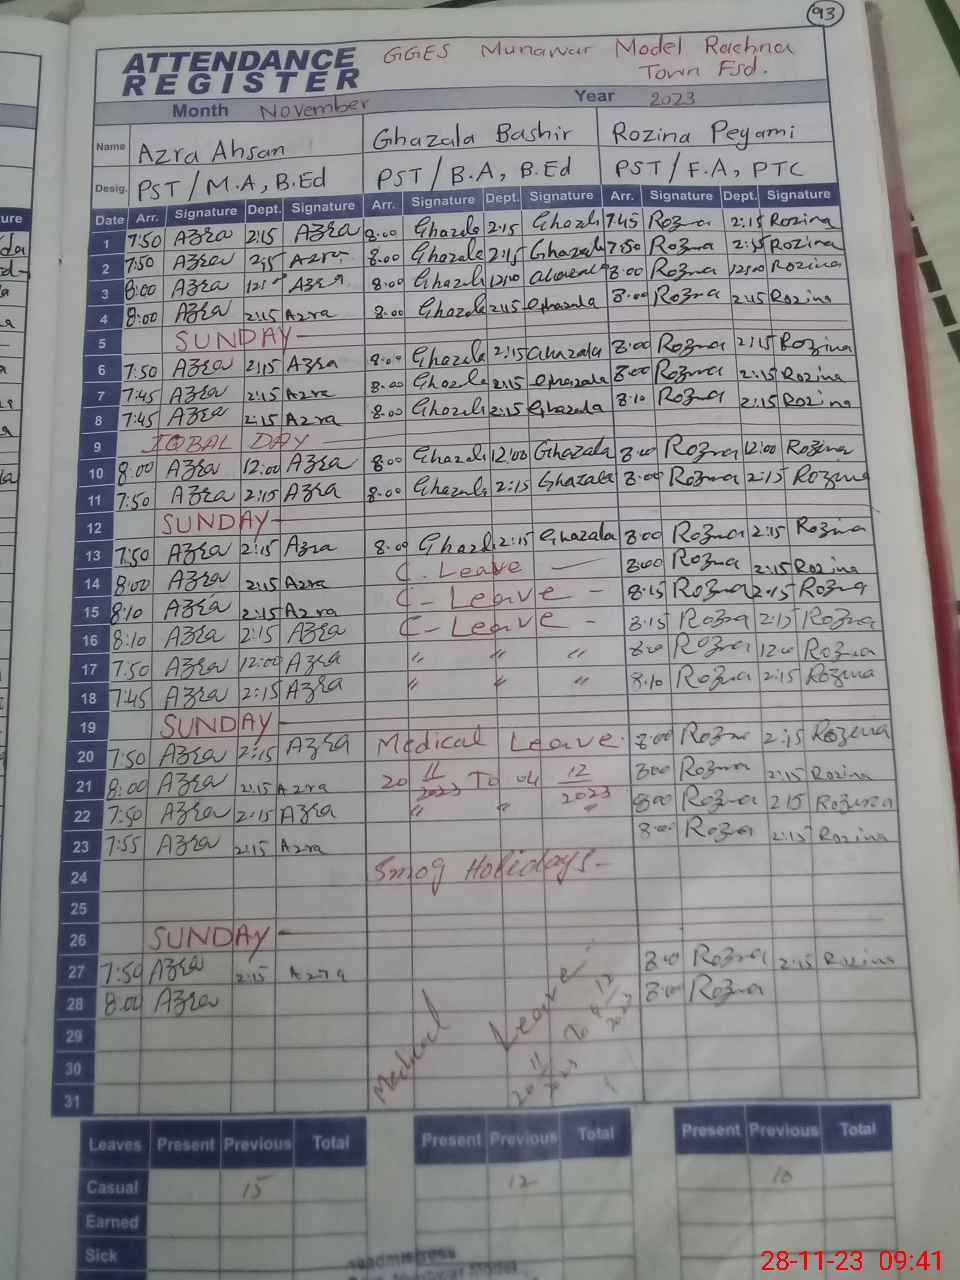 93
ATTENDANCE REGISTER
GGES Munawar Model Rachna
Town Fsd.
Month November Year 2023
Name Azra Ahsan Ghazala Bashir Rozina Peyami
Desig. PST/M.A, B.Ed PST/B.A, B.Ed PST/F.A, PTC
Date Arr. Signature Dept. Signature Arr. Signature Dept. Signature Arr. Signature Dept. Signature
1 7:50 Azra 2:15 Azra 8:00 Ghazala 2:15 Ghazala 7:45 Rozina 2:15 Rozina
2 7:50 Azra 2:15 Azra 8:00 Ghazala 2:15 Ghazala 7:50 Rozina 2:15 Rozina
3 8:00 Azra Azra 8:00 Ghazala 12:00 8:00 Rozina 12:00 Rozina
4 8:00 Azra 2:15 Azra 8:00 Ghazala 2:15 Ghazala 8:00 Rozina 2:15 Rozina
5 SUNDAY
6 7:50 Azra 2:15 Azra 8:00 Ghazala 2:15 Ghazala 8:00 Rozina 2:15 Rozina
7 7:45 Azra 2:15 Azra 8:00 Ghazala 2:15 Ghazala 8:00 Rozina 2:15 Rozina
8 7:45 Azra 2:15 Azra 8:00 Ghazala 2:15 Ghazala 8:10 Rozina 2:15 Rozina
9 IQBAL DAY
10 8:00 Azra 12:00 Azra 8:00 Ghazala 12:00 Ghazala 8:00 Rozina 12:00 Rozina
11 7:50 Azra 2:15 Azra 8:00 Ghazala 2:15 Ghazala 8:00 Rozina 2:15 Rozina
12 SUNDAY
13 7:50 Azra 2:15 Azra 8:00 Ghazala 2:15 Ghazala 8:00 Rozina 2:15 Rozina
14 8:00 Azra 2:15 Azra C. Leave 8:00 Rozina 2:15 Rozina
15 8:10 Azra 2:15 Azra C-Leave - 8:15 Rozina 2:15 Rozina
16 8:10 Azra 2:15 Azra C-Leave - 8:15 Rozina 2:15 Rozina
17 7:50 Azra 12:00 Azra " " " 8:00 Rozina 12:00 Rozina
18 7:45 Azra 2:15 Azra " " " 8:10 Rozina 2:15 Rozina
19 SUNDAY
20 7:50 Azra 2:15 Azra Medical Leave. 8:00 Rozina 2:15 Rozina
21 8:00 Azra 2:15 Azra 20 11/2023 To 04 12/2023 8:00 Rozina 2:15 Rozina
22 7:50 Azra 2:15 Azra " " " 8:00 Rozina 2:15 Rozina
23 7:55 Azra 2:15 Azra 8:00 Rozina 2:15 Rozina
24 Smog Holidays-
25
26 SUNDAY
27 7:50 Azra 2:15 Azra 8:00 Rozina 2:15 Rozina
28 8:00 Azra 8:00 Rozina
29 Medical Leave
30 20 11/2023 To 4 12/2023
31
Leaves Present Previous Total Present Previous Total Present Previous Total
Casual 15 12 10
Earned
Sick
28-11-23 09:41